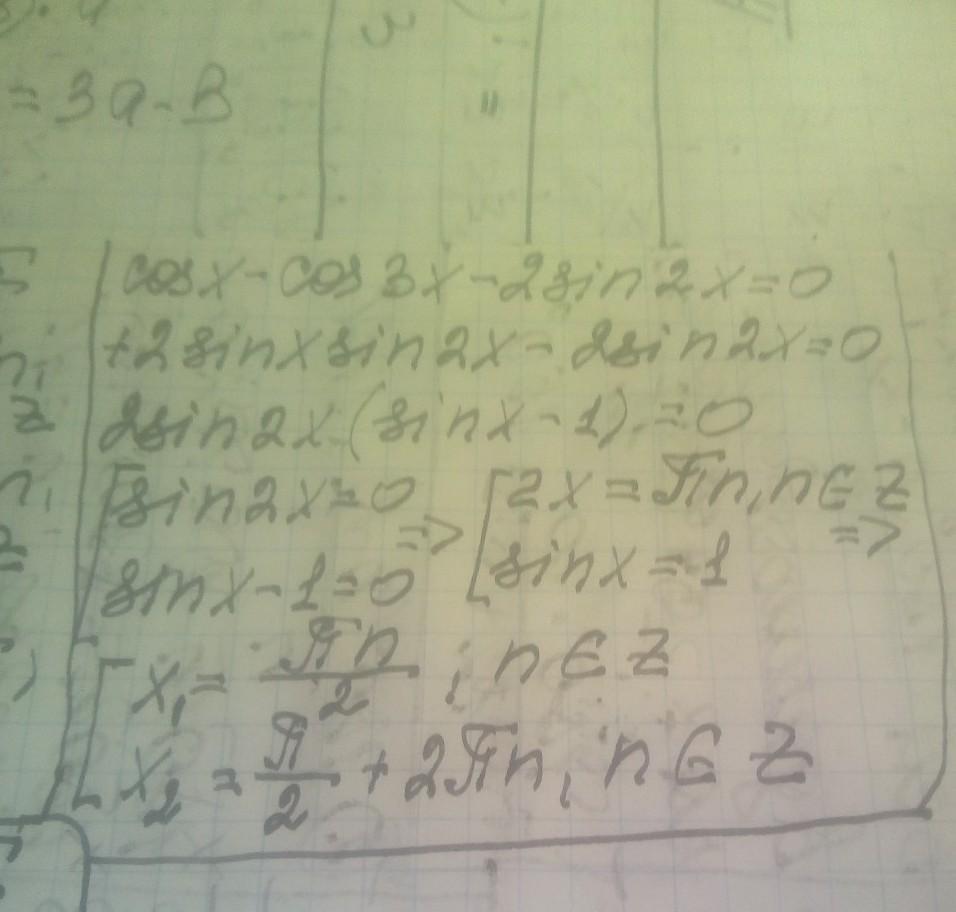 = 3a - B
3
=
cosx - cos 3x - 2sin 2x = 0
+2 sinx sin2x - 2sin 2x = 0
2sin 2x (sinx - 1) = 0
[sin2x = 0 => [2x = πn, n ∈ Z =>
sinx - 1 = 0 sinx = 1
[x₁ = πn/2 ; n ∈ Z
x₂ = π/2 + 2πn, n ∈ Z